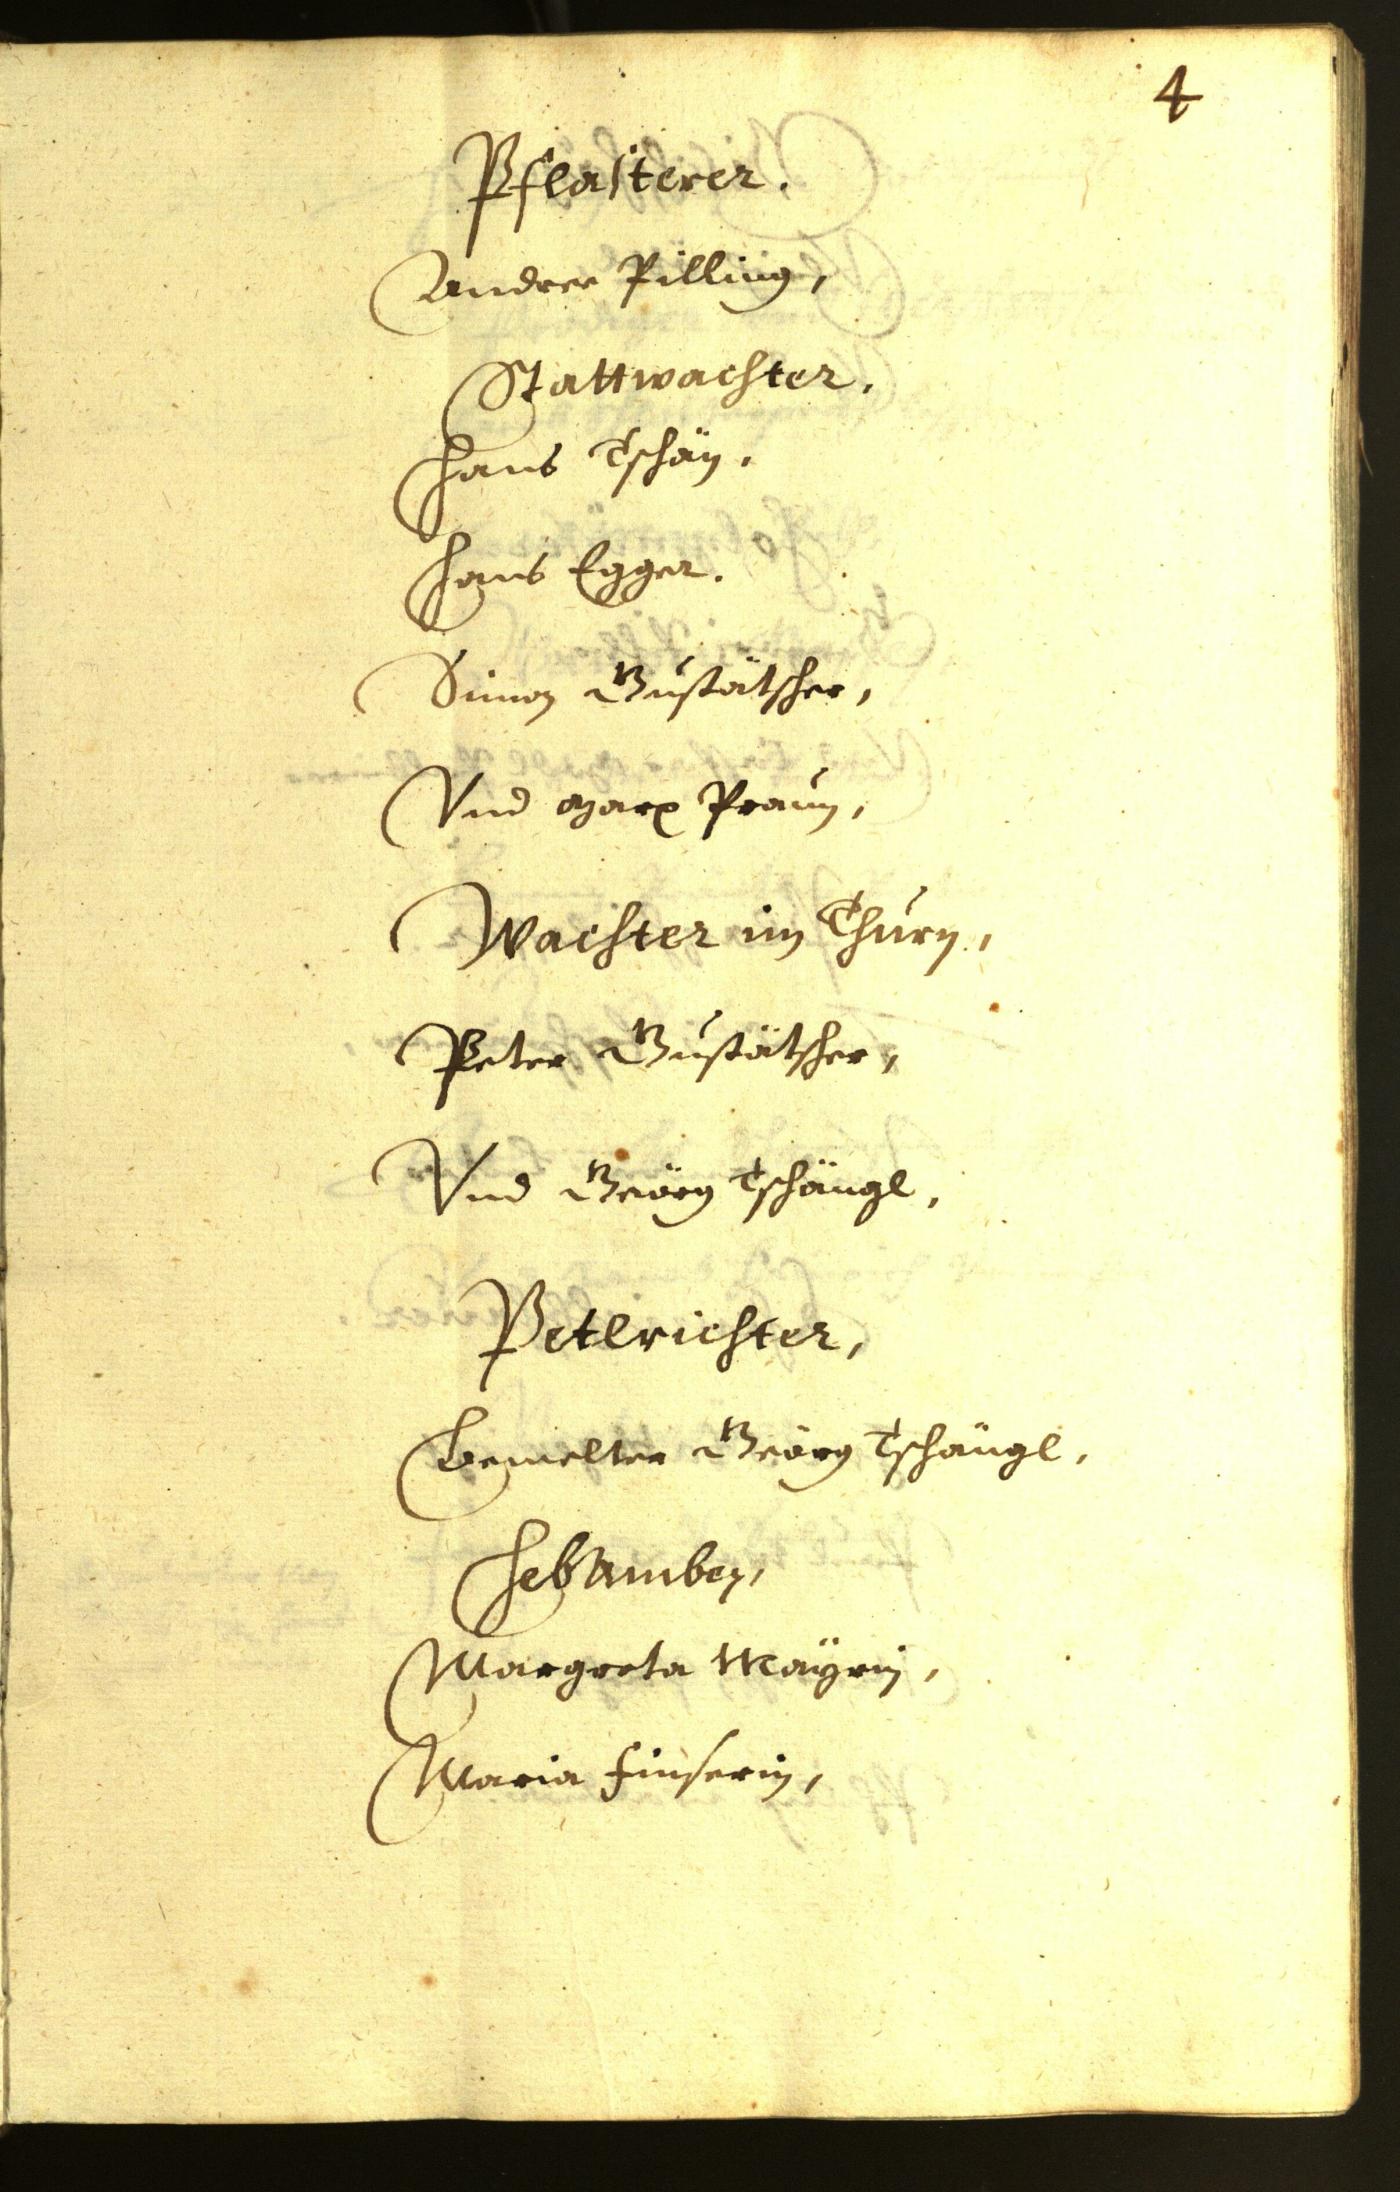 4
Pflasterer.
Andree Pilling,
Stattwachter.
Hans Tschän.
Hans Egger.
Simon Gustätscher,
Vnd Marx Praun,
Wachter im Thurn,
Peter Gustätscher,
Vnd Geörg Tschängl,
Petlrichter,
Bemelter Geörg Tschängl,
Hebamben,
Margreta Mayrin,
Maria Finserin,